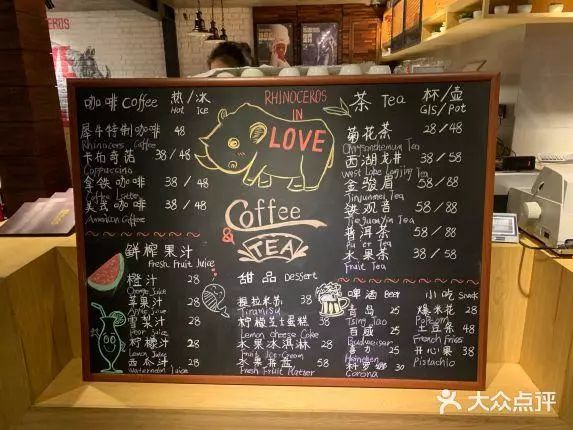 RHINOCEROS
IN
LOVE
Coffee
&
TEA
咖啡 Coffee 热/冰
Hot Ice
犀牛特制咖啡 48
Rhinocers Coffee
卡布奇诺 38/48
Cappuccino
拿铁咖啡 38/48
Coffee Latter
美式咖啡 38/48
American Coffee
茶 Tea 杯/壶
Gls/Pot
菊花茶 28/48
Chrysanthemum Tea
西湖龙井 38/58
West Lake Longjing Tea
金骏眉 58/88
Jinjunmei Tea
铁观音 58/88
Tieguanyin Tea
普洱茶 58/88
Pu'er Tea
水果茶 38/58
Fruit Tea
鲜榨果汁
Fresh Fruit Juice
橙汁 28
Orange Juice
苹果汁 28
Apple Juice
雪梨汁 28
Pear Juice
柠檬汁 28
Lemon Juice
西瓜汁 28
Watermelon Juice
甜品 Dessert
提拉米苏 28
Tiramisu
柠檬芝士蛋糕 38
Lemon Cheese Cake
水果冰淇淋 38
Fruit Ice-Cream
水果拼盘 58
Fresh Fruit Platter
啤酒 Beer
青岛 25
Tsing Tao
百威 30
Budweiser
喜力 35
Heineken
科罗娜 30
Corona
小吃 Snack
爆米花 28
Popcorn
土豆条 28
French Fries
开心果 38
Pistachio
大众点评